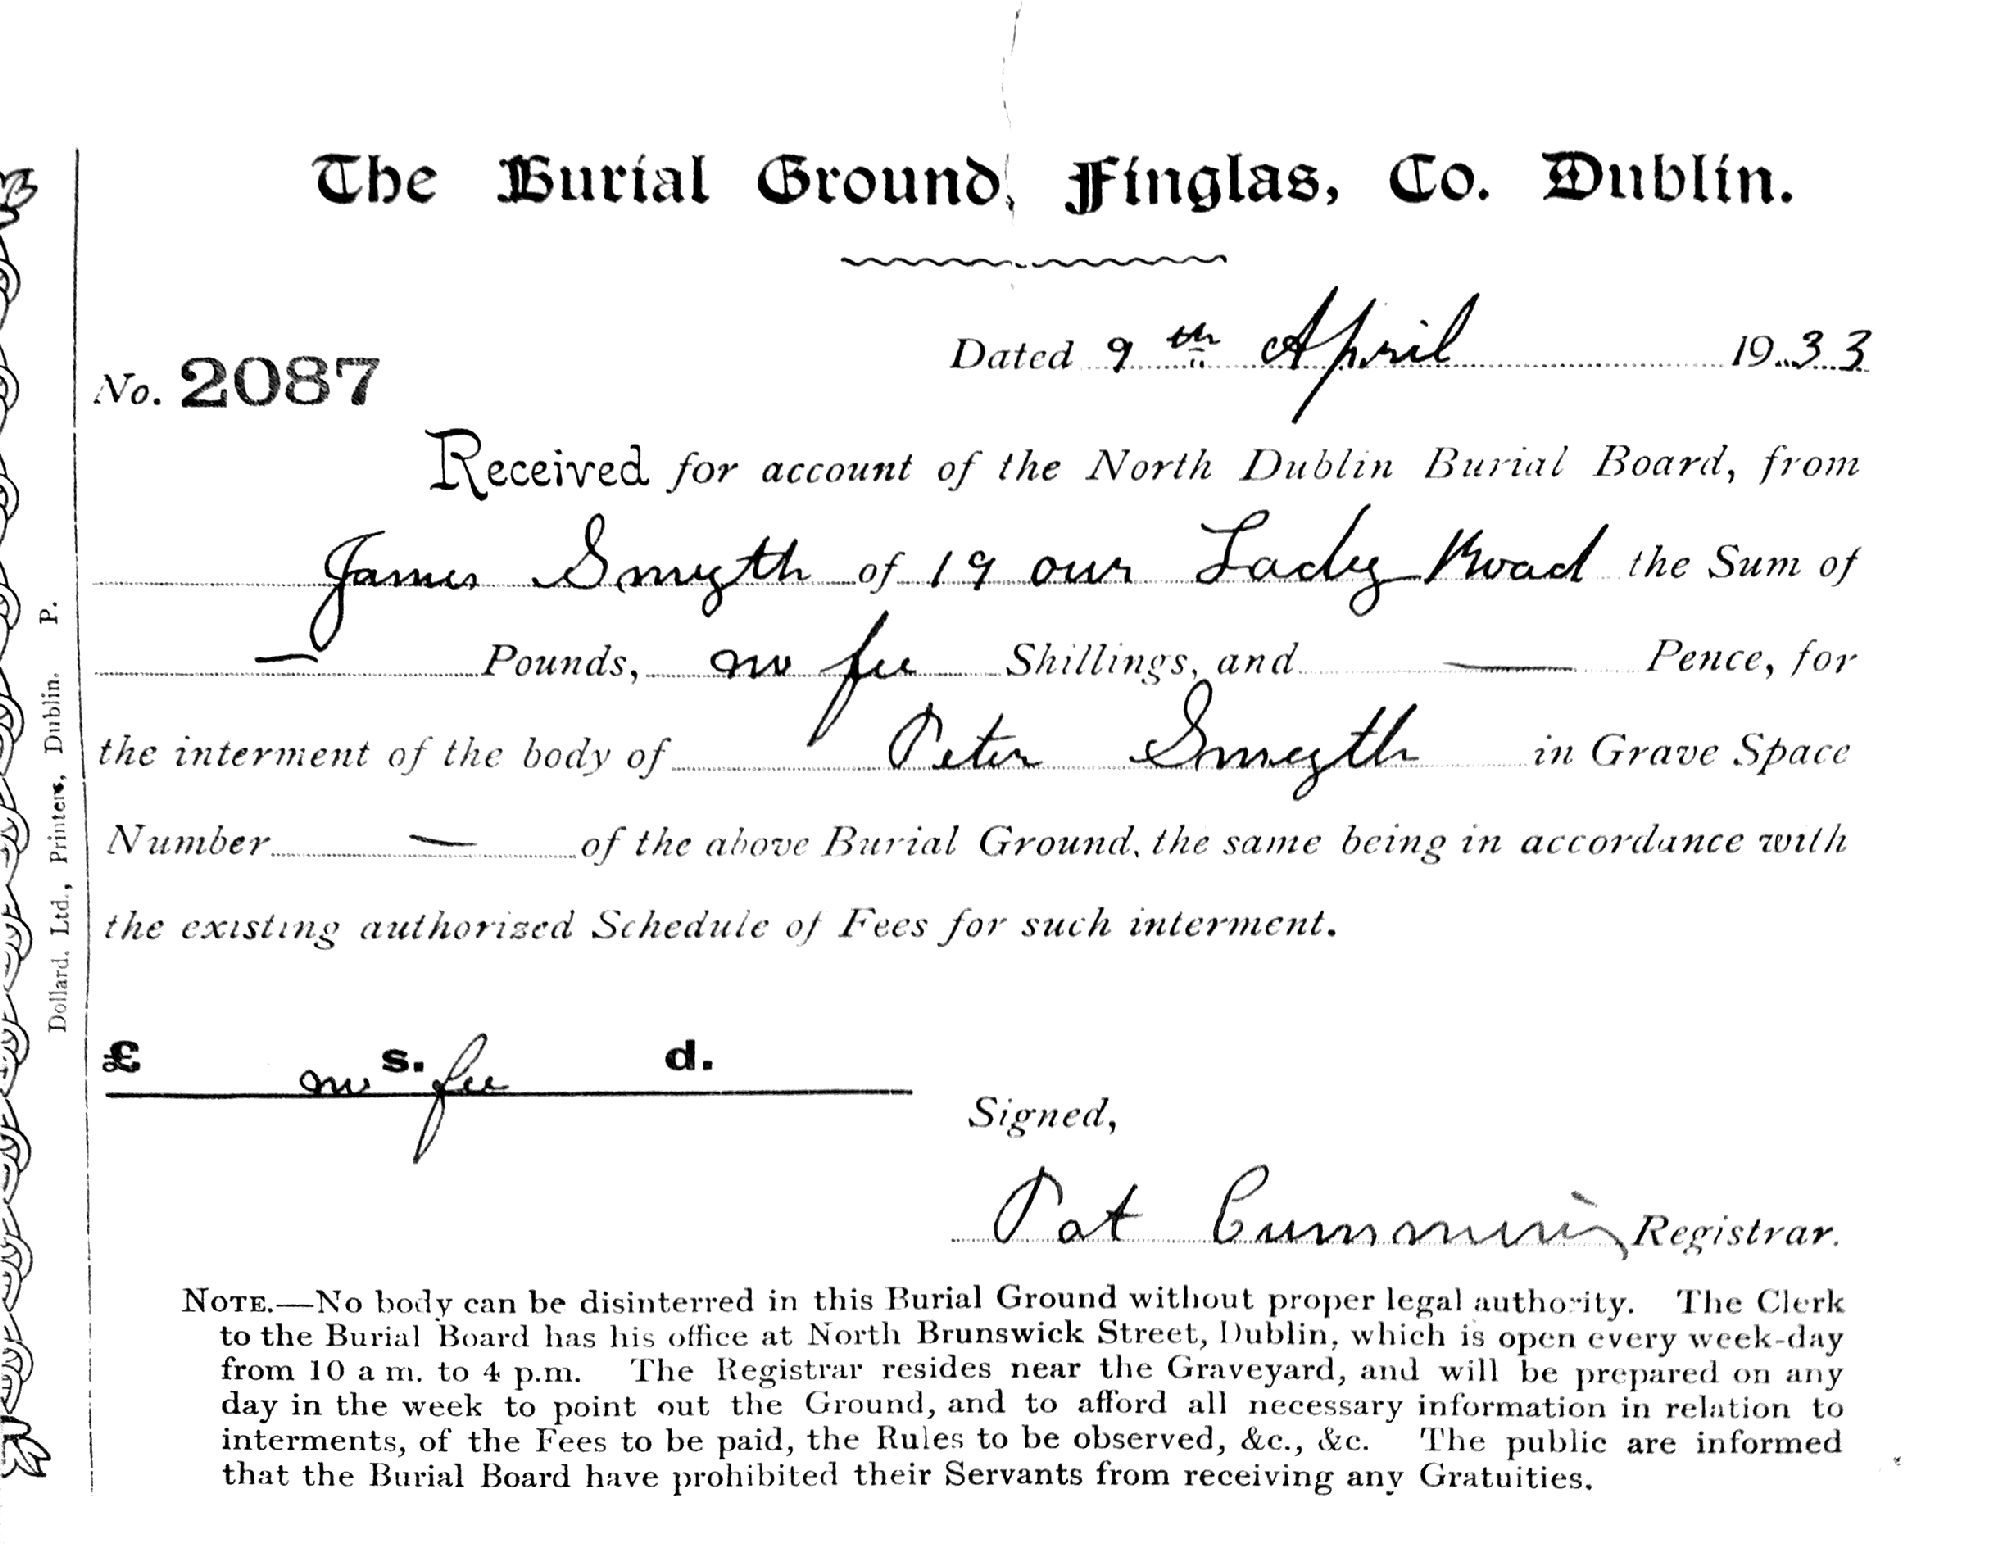 The Burial Ground, Finglas, Co. Dublin.
Dated 9th April 1933
No. 2087
Received for account of the North Dublin Burial Board, from
James Smyth of 19 our Lady Road the Sum of
— Pounds, no fee Shillings, and — Pence, for
the interment of the body of Peter Smyth in Grave Space
Number — of the above Burial Ground, the same being in accordance with
the existing authorized Schedule of Fees for such interment.
£ s. d.
no fee
Signed,
Pat Cummins Registrar.
NOTE.—No body can be disinterred in this Burial Ground without proper legal authority. The Clerk
to the Burial Board has his office at North Brunswick Street, Dublin, which is open every week-day
from 10 a m. to 4 p.m. The Registrar resides near the Graveyard, and will be prepared on any
day in the week to point out the Ground, and to afford all necessary information in relation to
interments, of the Fees to be paid, the Rules to be observed, &c., &c. The public are informed
that the Burial Board have prohibited their Servants from receiving any Gratuities.
Dollard, Ltd., Printers, Dublin. P.